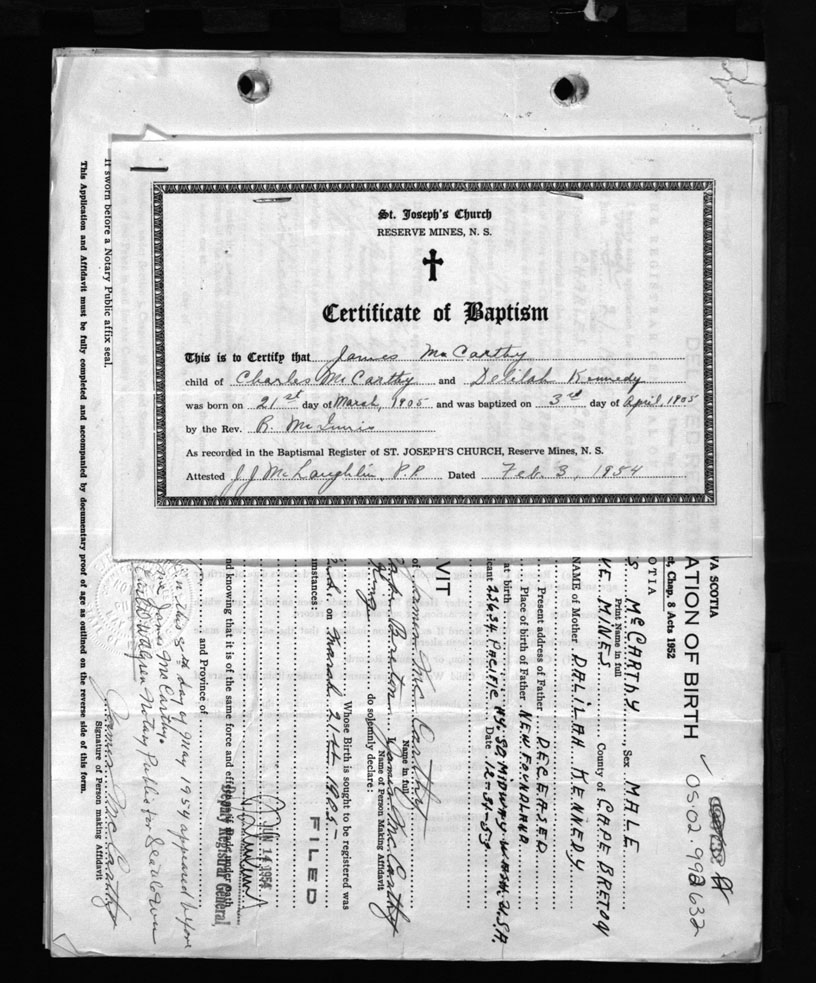 St. Joseph's Church
RESERVE MINES, N. S.
Certificate of Baptism
This is to Certify that James McCarthy
child of Charles McCarthy and Delilah Kennedy
was born on 21st day of March, 1905 and was baptized on 3rd day of April, 1905
by the Rev. R. McInnis
As recorded in the Baptismal Register of ST. JOSEPH'S CHURCH, Reserve Mines, N. S.
Attested J J McLaughlin, P.P. Dated Feb. 3, 1954
VA SCOTIA
ATION OF BIRTH
05.02 992632
ct, Chap. 8 Acts 1952
OTIA
S McCARTHY, Sex MALE
Print Name in full
VE MINES County of CAPE BRETON
NAME of Mother DALILAH KENNEDY
Present address of Father DECEASED
Place of birth of Father NEWFOUNDLAND
at birth
icant 25634 PACIFIC HY. SO MIDWAY WASH. U.S.A.
Date 12-31-53
VIT
of James McCarthy
Name in full
Breton James McCarthy
Name of Person Making Affidavit
King do solemnly declare:
Whose Birth is sought to be registered was
on March 21st 1905
umstances:
FILED
JUN 14 1954
nd knowing that it is of the same force and effect as if made under oath
Deputy Registrar General
and Province of
this 3rd day of May 1954 appeared before
me James McCarthy.
Notary Public for
James McCarthy
Signature of Person making Affidavit
This Application and Affidavit must be fully completed and accompanied by documentary proof of age as outlined on the reverse side of this form.
If sworn before a Notary Public affix seal.